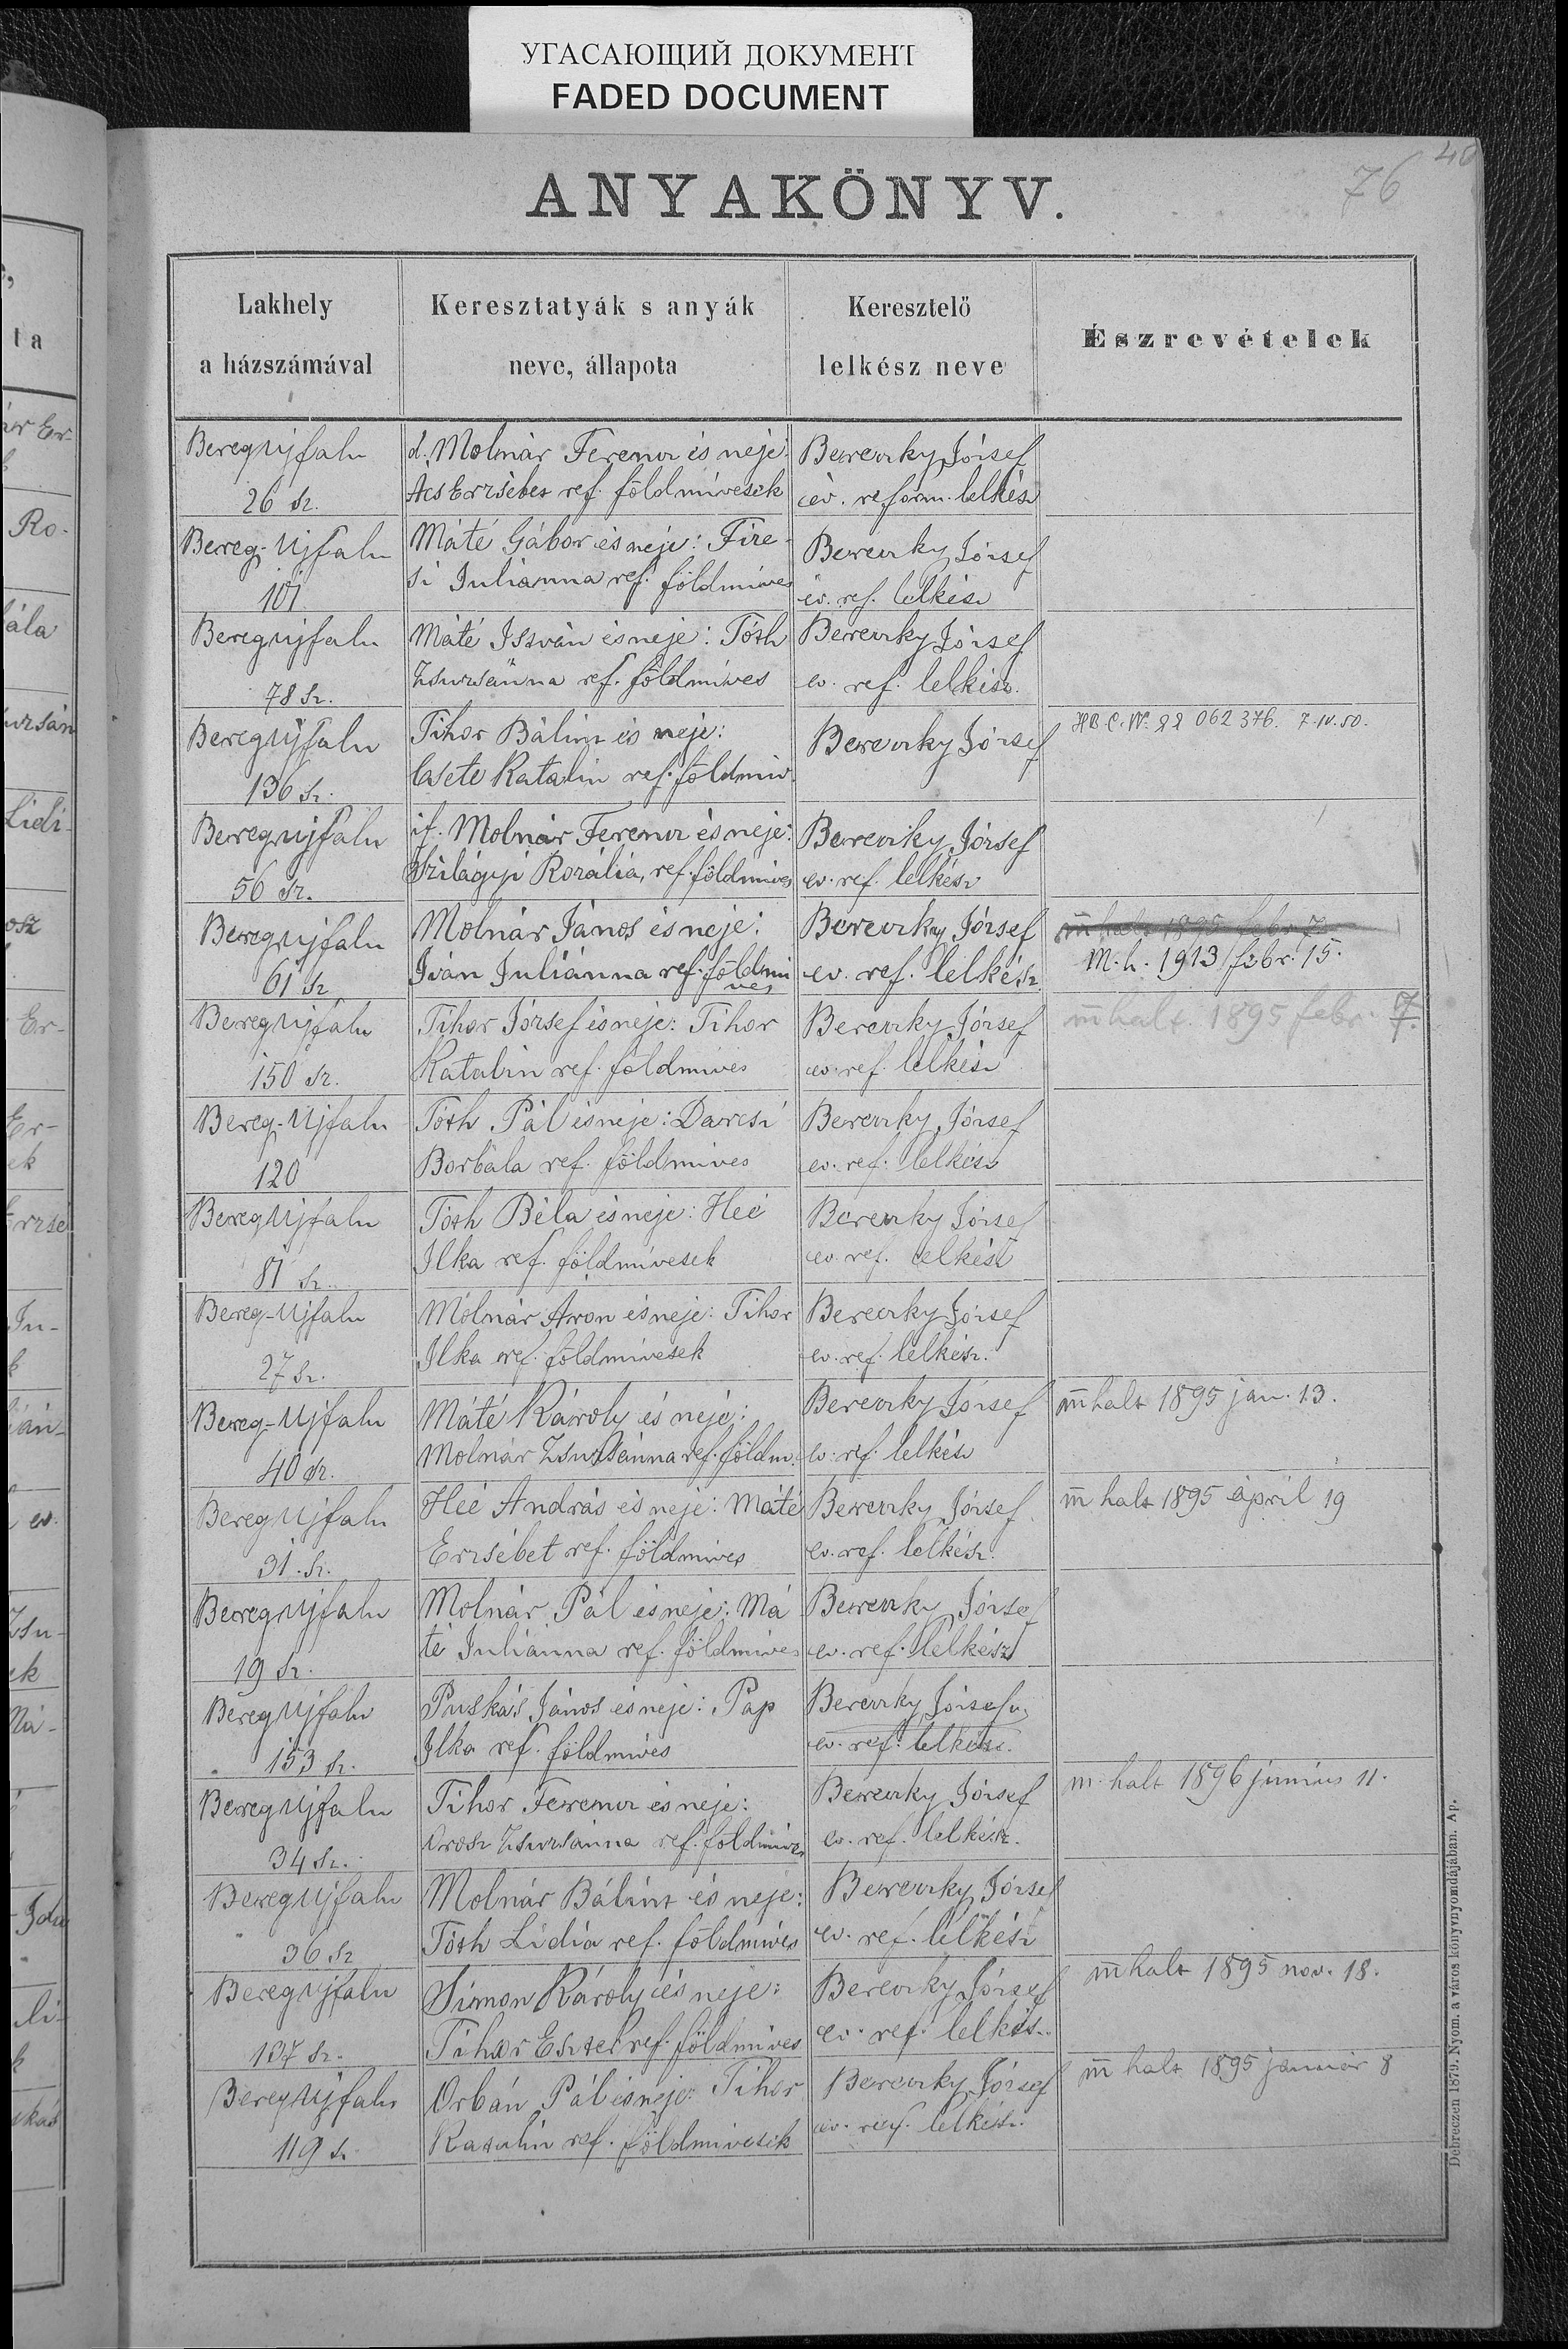 УГАСАЮЩИЙ ДОКУМЕНТ
FADED DOCUMENT
76
40
ANYAKÖNYV.
Lakhely
a házszámával
Keresztatyák s anyák
neve, állapota
Keresztelő
lelkész neve
Észrevételek
Beregujfalu
26 sz.
d. Molnár Ferencz és neje:
Ács Erzsébet ref. földmivesek
Bereczky József
ev. reform. lelkész
Bereg-Ujfalu
101
Máté Gábor és neje: Füze-
si Julianna ref. földmives
Bereczky József
ev. ref. lelkész
Beregujfalu
78 sz.
Máté István és neje: Tóth
Zsuzsánna ref. földmives
Bereczky József
ev. ref. lelkész.
Beregujfalu
136 sz.
Tihor Bálint és neje:
Csete Katalin ref. földmiv.
Bereczky József
062376. 7.IV.50.
Beregujfalu
56 sz.
if. Molnár Ferencz és neje:
Szilágyi Rozália, ref. földmives
Bereczky József
ev. ref. lelkész
Beregujfalu
61 sz
Molnár János és neje:
Iván Juliánna ref. földmi
ves
Bereczky József
ev. ref. lelkész
m halt 1895 febr 7
M. h. 1913 febr. 15.
Beregujfalu
150 sz.
Tihor József és neje: Tihor
Katalin ref. földmives
Bereczky József
ev. ref. lelkész
m halt. 1895 febr. 7.
Bereg-Ujfalu
120
Tóth Pál és neje: Darcsi
Borbála ref. földmives
Bereczky József
ev. ref. lelkész
Beregujfalu
81 sz.
Tóth Béla és neje: Héé
Ilka ref. földmivesek
Bereczky József
ev. ref. lelkész
Bereg-Ujfalu
27 sz.
Molnár Áron és neje: Tihor
Ilka ref. földmivesek
Bereczky József
ev. ref. lelkész.
Bereg-Ujfalu
40 sz.
Máté Károly és neje:
Molnár Zsuzsánna ref. földm.
Bereczky József
ev. ref. lelkész
m halt 1895 jan. 13.
Beregujfalu
31. sz.
Héé András és neje: Máté
Erzsébet ref. földmives
Bereczky József
ev. ref. lelkész.
m halt 1895 april 19
Beregujfalu
19 sz.
Molnár Pál és neje: Má
té Juliánna ref. földmives
Bereczky József
ev. ref. lelkész
Beregujfalu
153 sz.
Puskás János és neje: Pap
Ilka ref. földmives
Bereczky József
ev. ref. lelkész.
Beregujfalu
34 sz.
Tihor Ferencz és neje:
Orosz Zsuzsánna ref. földmives
Bereczky József
ev. ref. lelkész.
m. halt 1896 junius 11.
Beregujfalu
36 sz
Molnár Bálint és neje:
Tóth Lidia ref. földmives
Bereczky József
ev. ref. lelkész
Beregujfalu
137 sz.
Simon Károly és neje:
Tihor Eszter ref. földmives
Bereczky József
ev. ref. lelkész.
m halt 1895 nov. 18.
Beregujfalu
119 sz
Orbán Pál és neje: Tihor
Katalin ref. földmivesek
Bereczky József
ev. ref. lelkész.
m halt 1895 január 8
Debreczen 1879. Nyom. a város könyvnyomdájában. Ap.